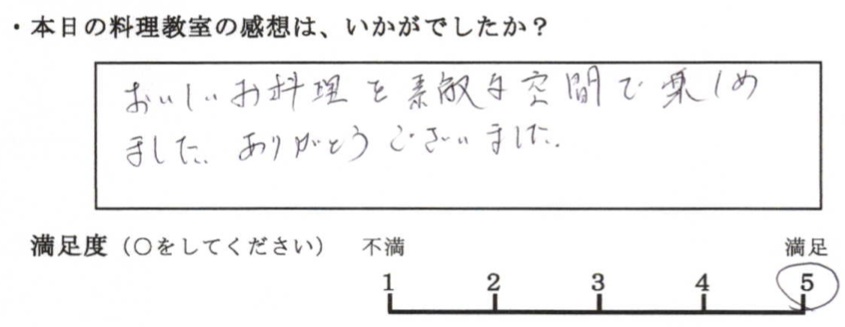 ・本日の料理教室の感想は、いかがでしたか？
おいしいお料理を素敵な空間で楽しめ
ました。ありがとうございました。
満足度（○をしてください） 不満 満足
1 2 3 4 5